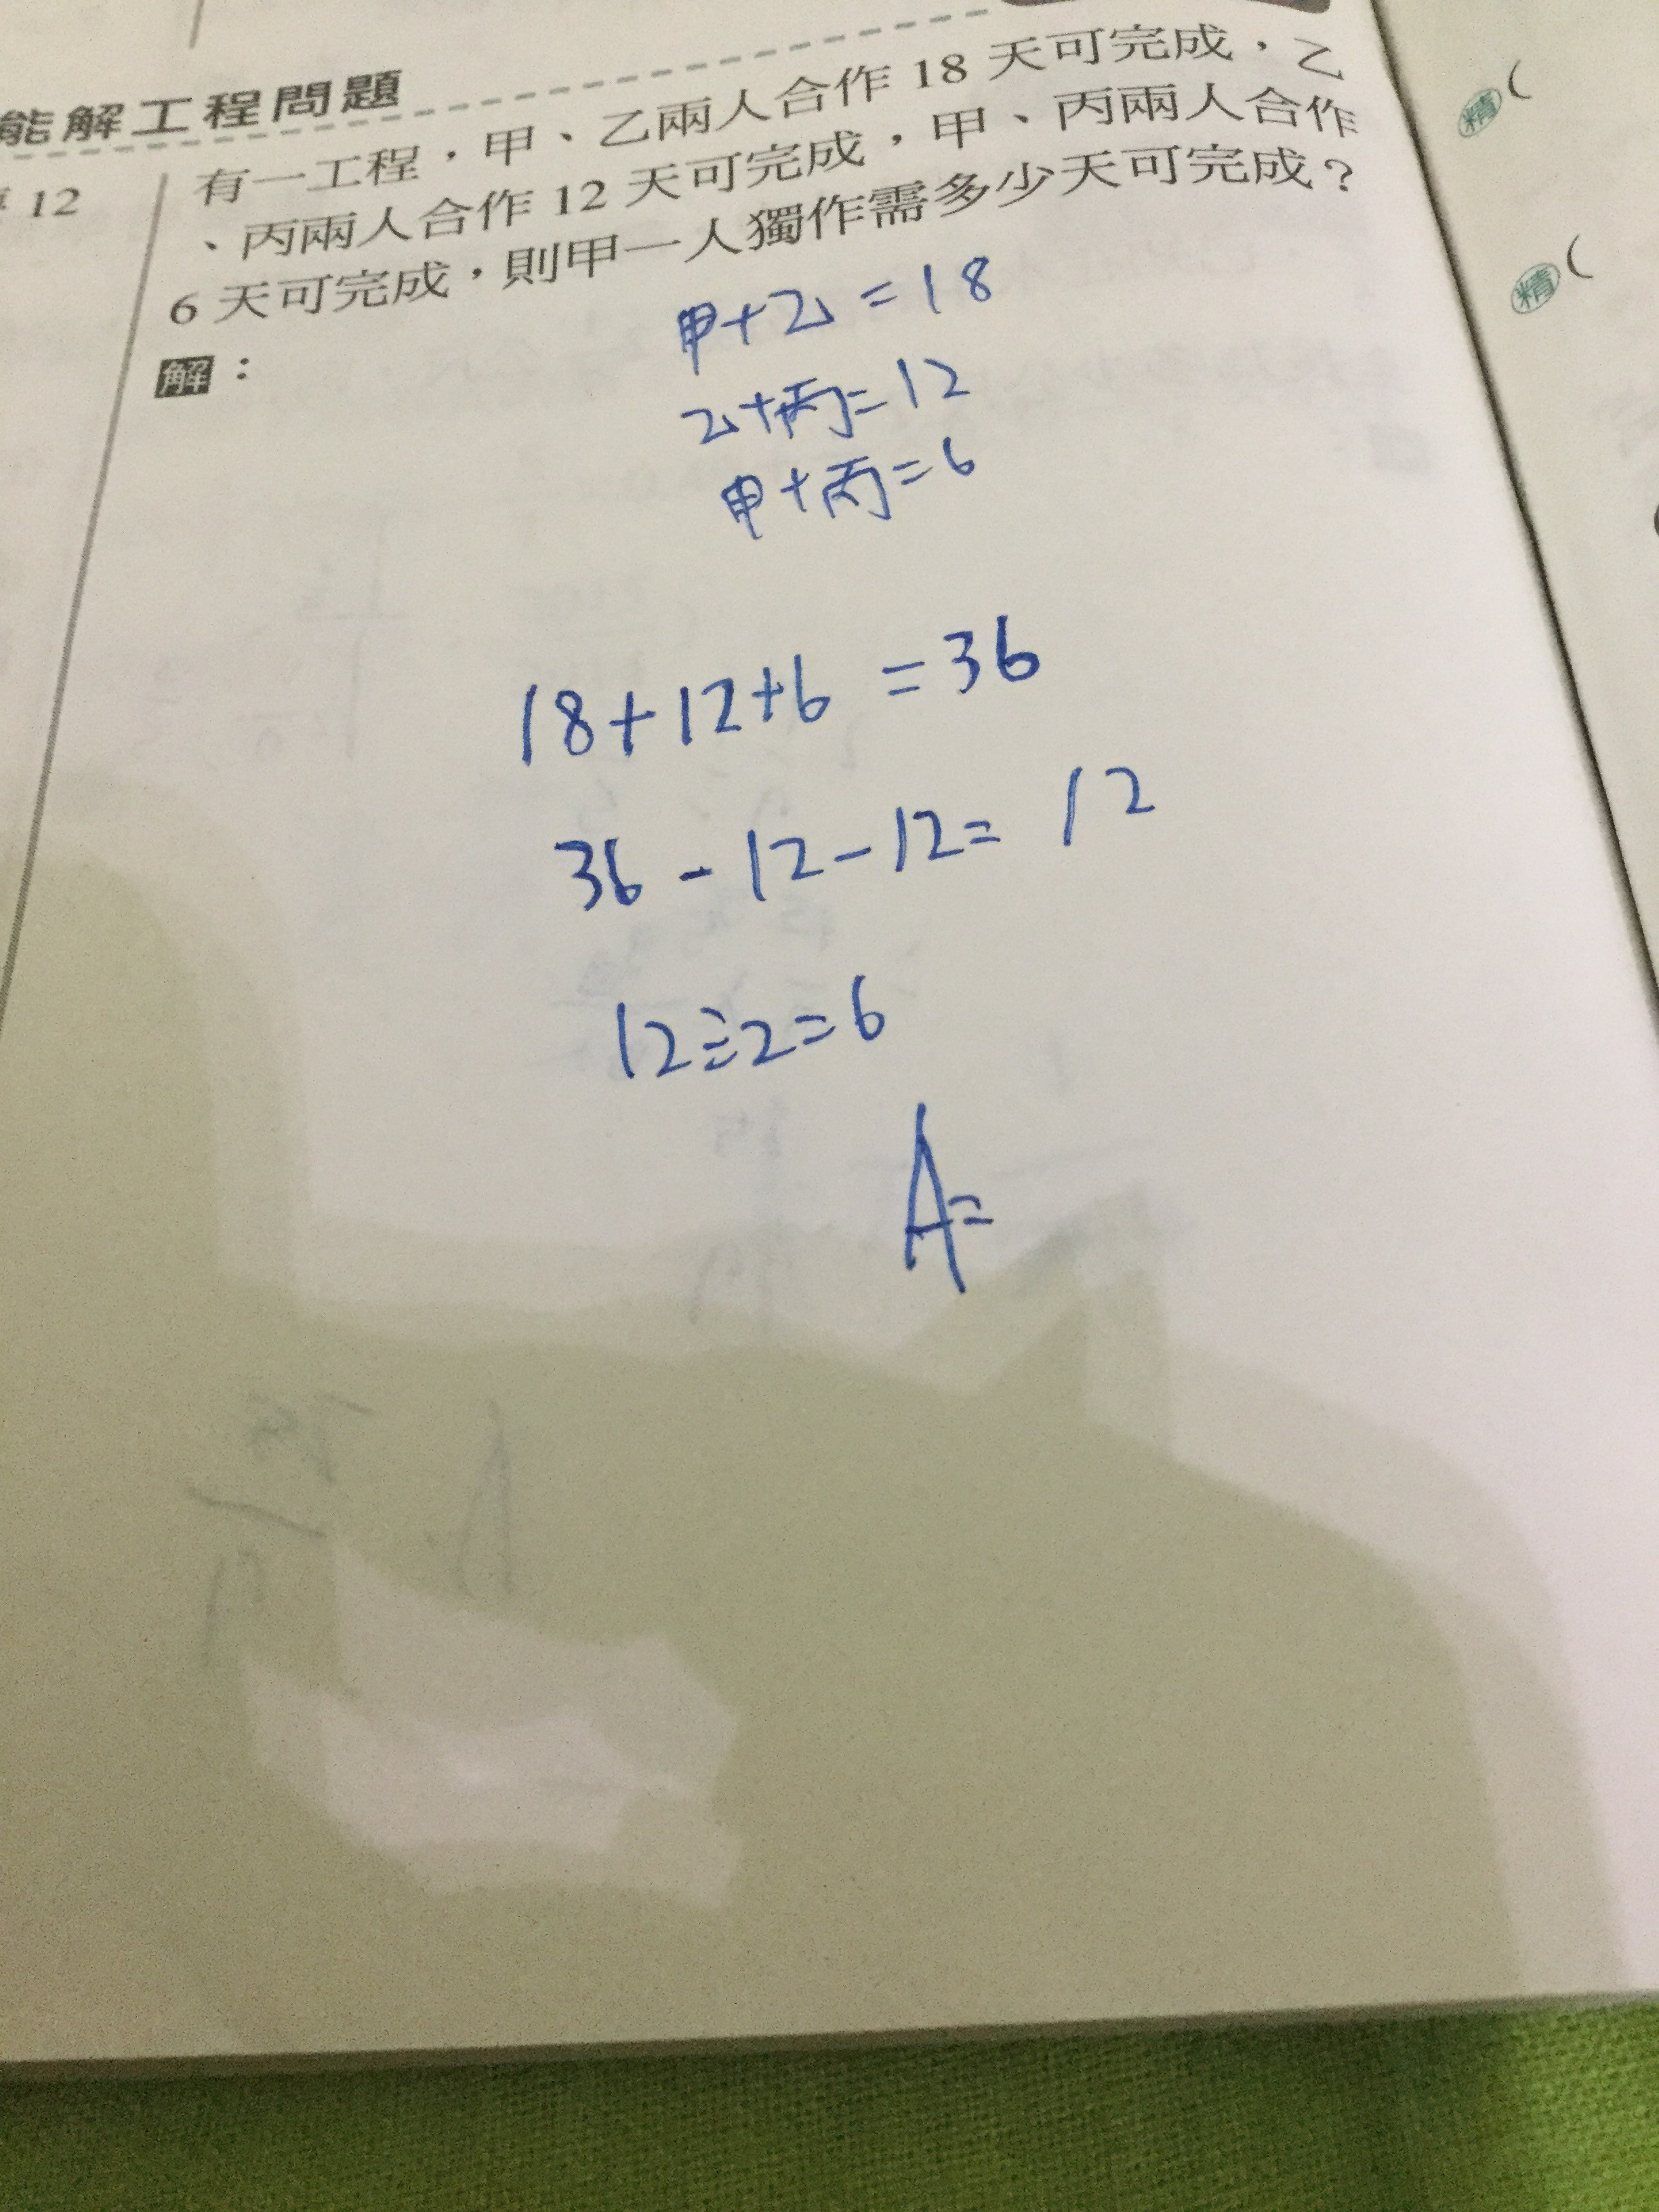 能解工程問題
12
有一工程，甲、乙兩人合作 18 天可完成，乙
、丙兩人合作 12 天可完成，甲、丙兩人合作
6 天可完成，則甲一人獨作需多少天可完成？
解：
甲+乙=18
乙+丙=12
甲+丙=6
18+12+6=36
36-12-12=12
12÷2=6
A=
精(
精(